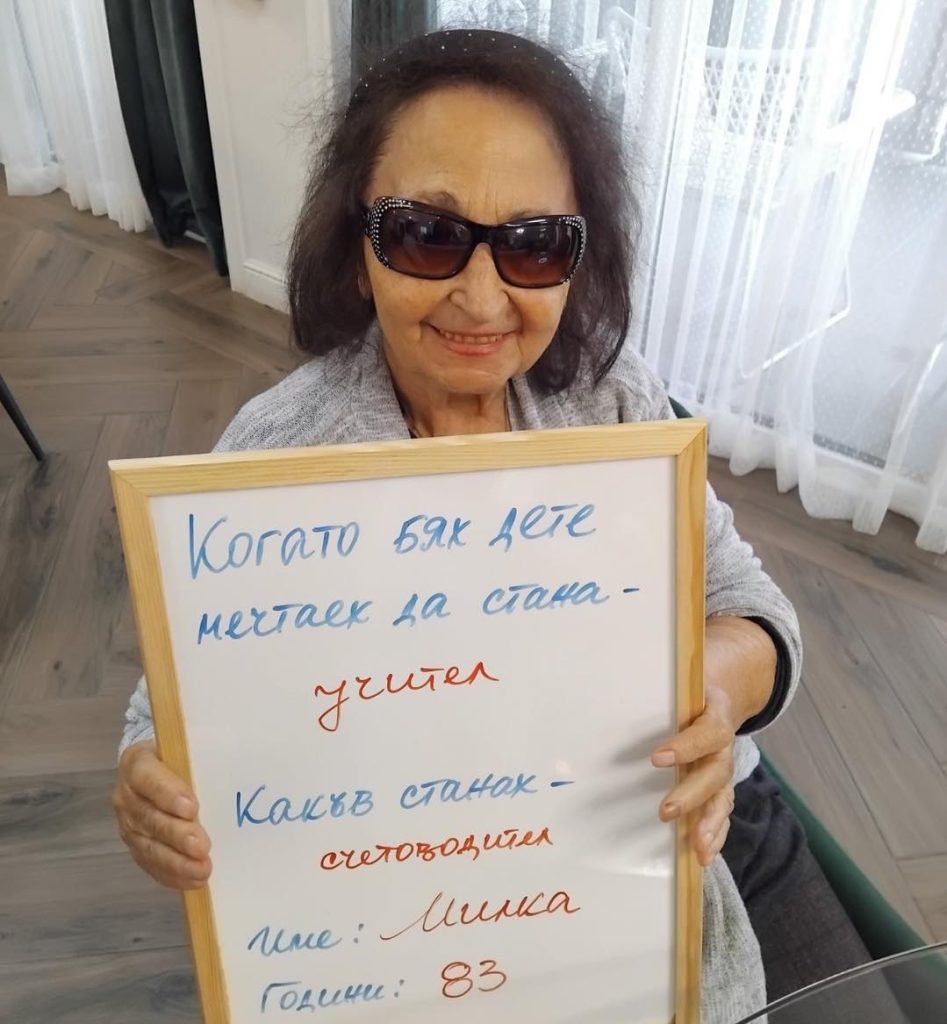 Когато бях дете
мечтаех да стана -
учител
Какъв станах -
счетоводител
Име: Милка
Години: 83